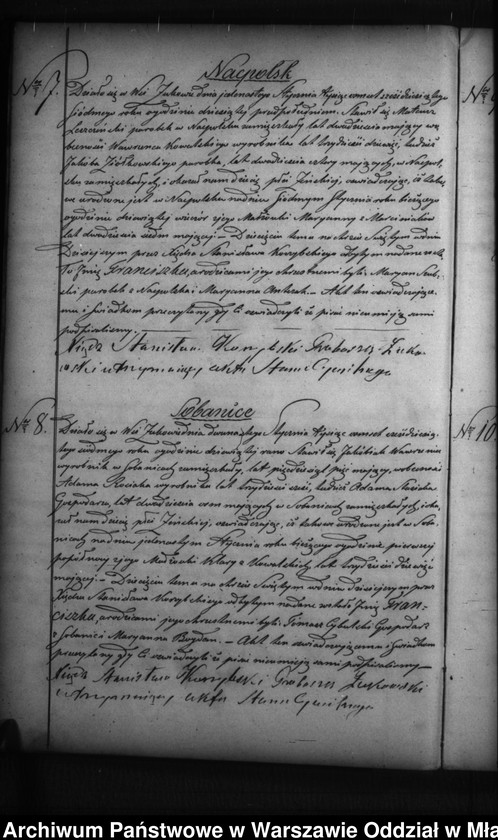 Nacpolsk
N 7.
Działo się w Wsi Żukowie dnia jedenastego Stycznia tysiąc ośmset sześćdziesiątego
siódmego roku o godzinie dziesiątej przed południem. Stawił się Mateusz
parobek w Nacpolsku zamieszkały lat dwadzieścia mający w o
becności Wawrzeńca Kowalskiego wyrobnika lat trzydzieści dziewięć, tudzież
Jakóba Ziółkowskiego parobka, lat dwadzieścia cztery mających, w Nacpol
sku zamieszkałych, i okazał nam dziecię płci żeńskiej, oświadczając, że takowe
urodzone jest w Nacpolsku na dniu siódmym Stycznia roku bieżącego
o godzinie dziewiątej wieczór z jego Małżonki Maryanny z Marciniaków
lat dwadzieścia siedm mającej – Dziecięciu temu na Chrzcie Świętym w dniu
dzisiejszym przez Księdza Stanisława Kurzybskiego odbytym nadane
Imię Franciszka, a rodzicami jego chrzestnemi byli: Maryan
parobek z Nacpolska i Maryanna – Akt ten oświadczające
mu i świadkom przeczytany gdy Ci oświadczyli iż pisać nie umieją sami
podpisaliśmy.
Ksiądz Stanisław Proboszcz Żuko
wski utrzymujący akta Stanu Cywilnego
Sobanice
N 8.
Działo się w Wsi Żukowie dnia dwunastego Stycznia tysiąc ośmset sześćdziesią
tego siódmego roku o godzinie dziewiątej rano Stawił się Jakóbiak Wawrzeniec
wyrobnik w Sobanicach zamieszkały, lat pięćdziesiąt pięć mający, w obecności
Adama wyrobnika lat trzydzieści sześć, tudzież Adama
Gospodarza, lat dwadzieścia osm mających w Sobanicach zamieszkałych, i oka
zał nam dziecię płci żeńskiej, oświadczając, że takowe urodzone jest w Soba
nicach na dniu jedenastym Stycznia roku bieżącego o godzinie pierwszej
po południu z jego Małżonki Klary z Kowalskich lat trzydzieści dziewięć
mającej – Dziecięciu temu na Chrzcie Świętym w dniu dzisiejszym przez
Księdza Stanisława Kurzybskiego odbytym nadane Imię Fran-
ciszka, a rodzicami jego chrzestnemi byli: Tomasz Gospodarz
z Sobanic i Maryanna Bogdan. – Akt ten oświadczającemu i świadkom
przeczytany gdy Ci oświadczyli iż pisać nie umieją sami podpisaliśmy
Ksiądz Stanisław Proboszcz Żukowski
utrzymujący akta Stanu Cywilnego
N 10
Archiwum Państwowe w Warszawie Oddział w Mła